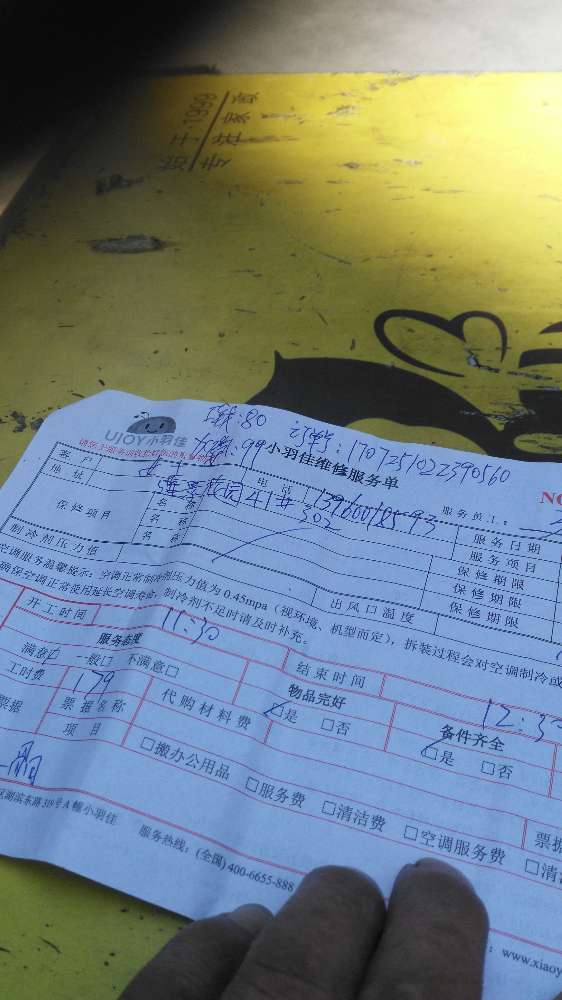 始于·1999
专注家政
UJOY小羽佳
:80
:99
:1707251022390560
小羽佳维修服务单
NO
客户
电话
服务员工:
服务日期
地址
花园41#
302
服务项目
保修项目
名称
保修期限
名称
保修期限
名称
保修期限
制冷剂压力值
出风口温度
空调服务温馨提示:空调正常制冷剂压力值为0.45mpa(视环境、机型而定),拆装过程会对空调制冷或
确保空调正常使用延长空调寿命,制冷剂不足时请及时补充。
开工时间
11:30
结束时间
12:30
服务态度
物品完好
备件齐全
满意□
一般□
不满意□
□是
□否
□是
□否
工时费
179
代购材料费
票据
票据名称
票据
项目
□搬办公用品
□服务费
□清洁费
□空调服务费
□清洁
湖滨东路319号A幢小羽佳
服务热线:(全国)400-6655-888
: www.xiaoy